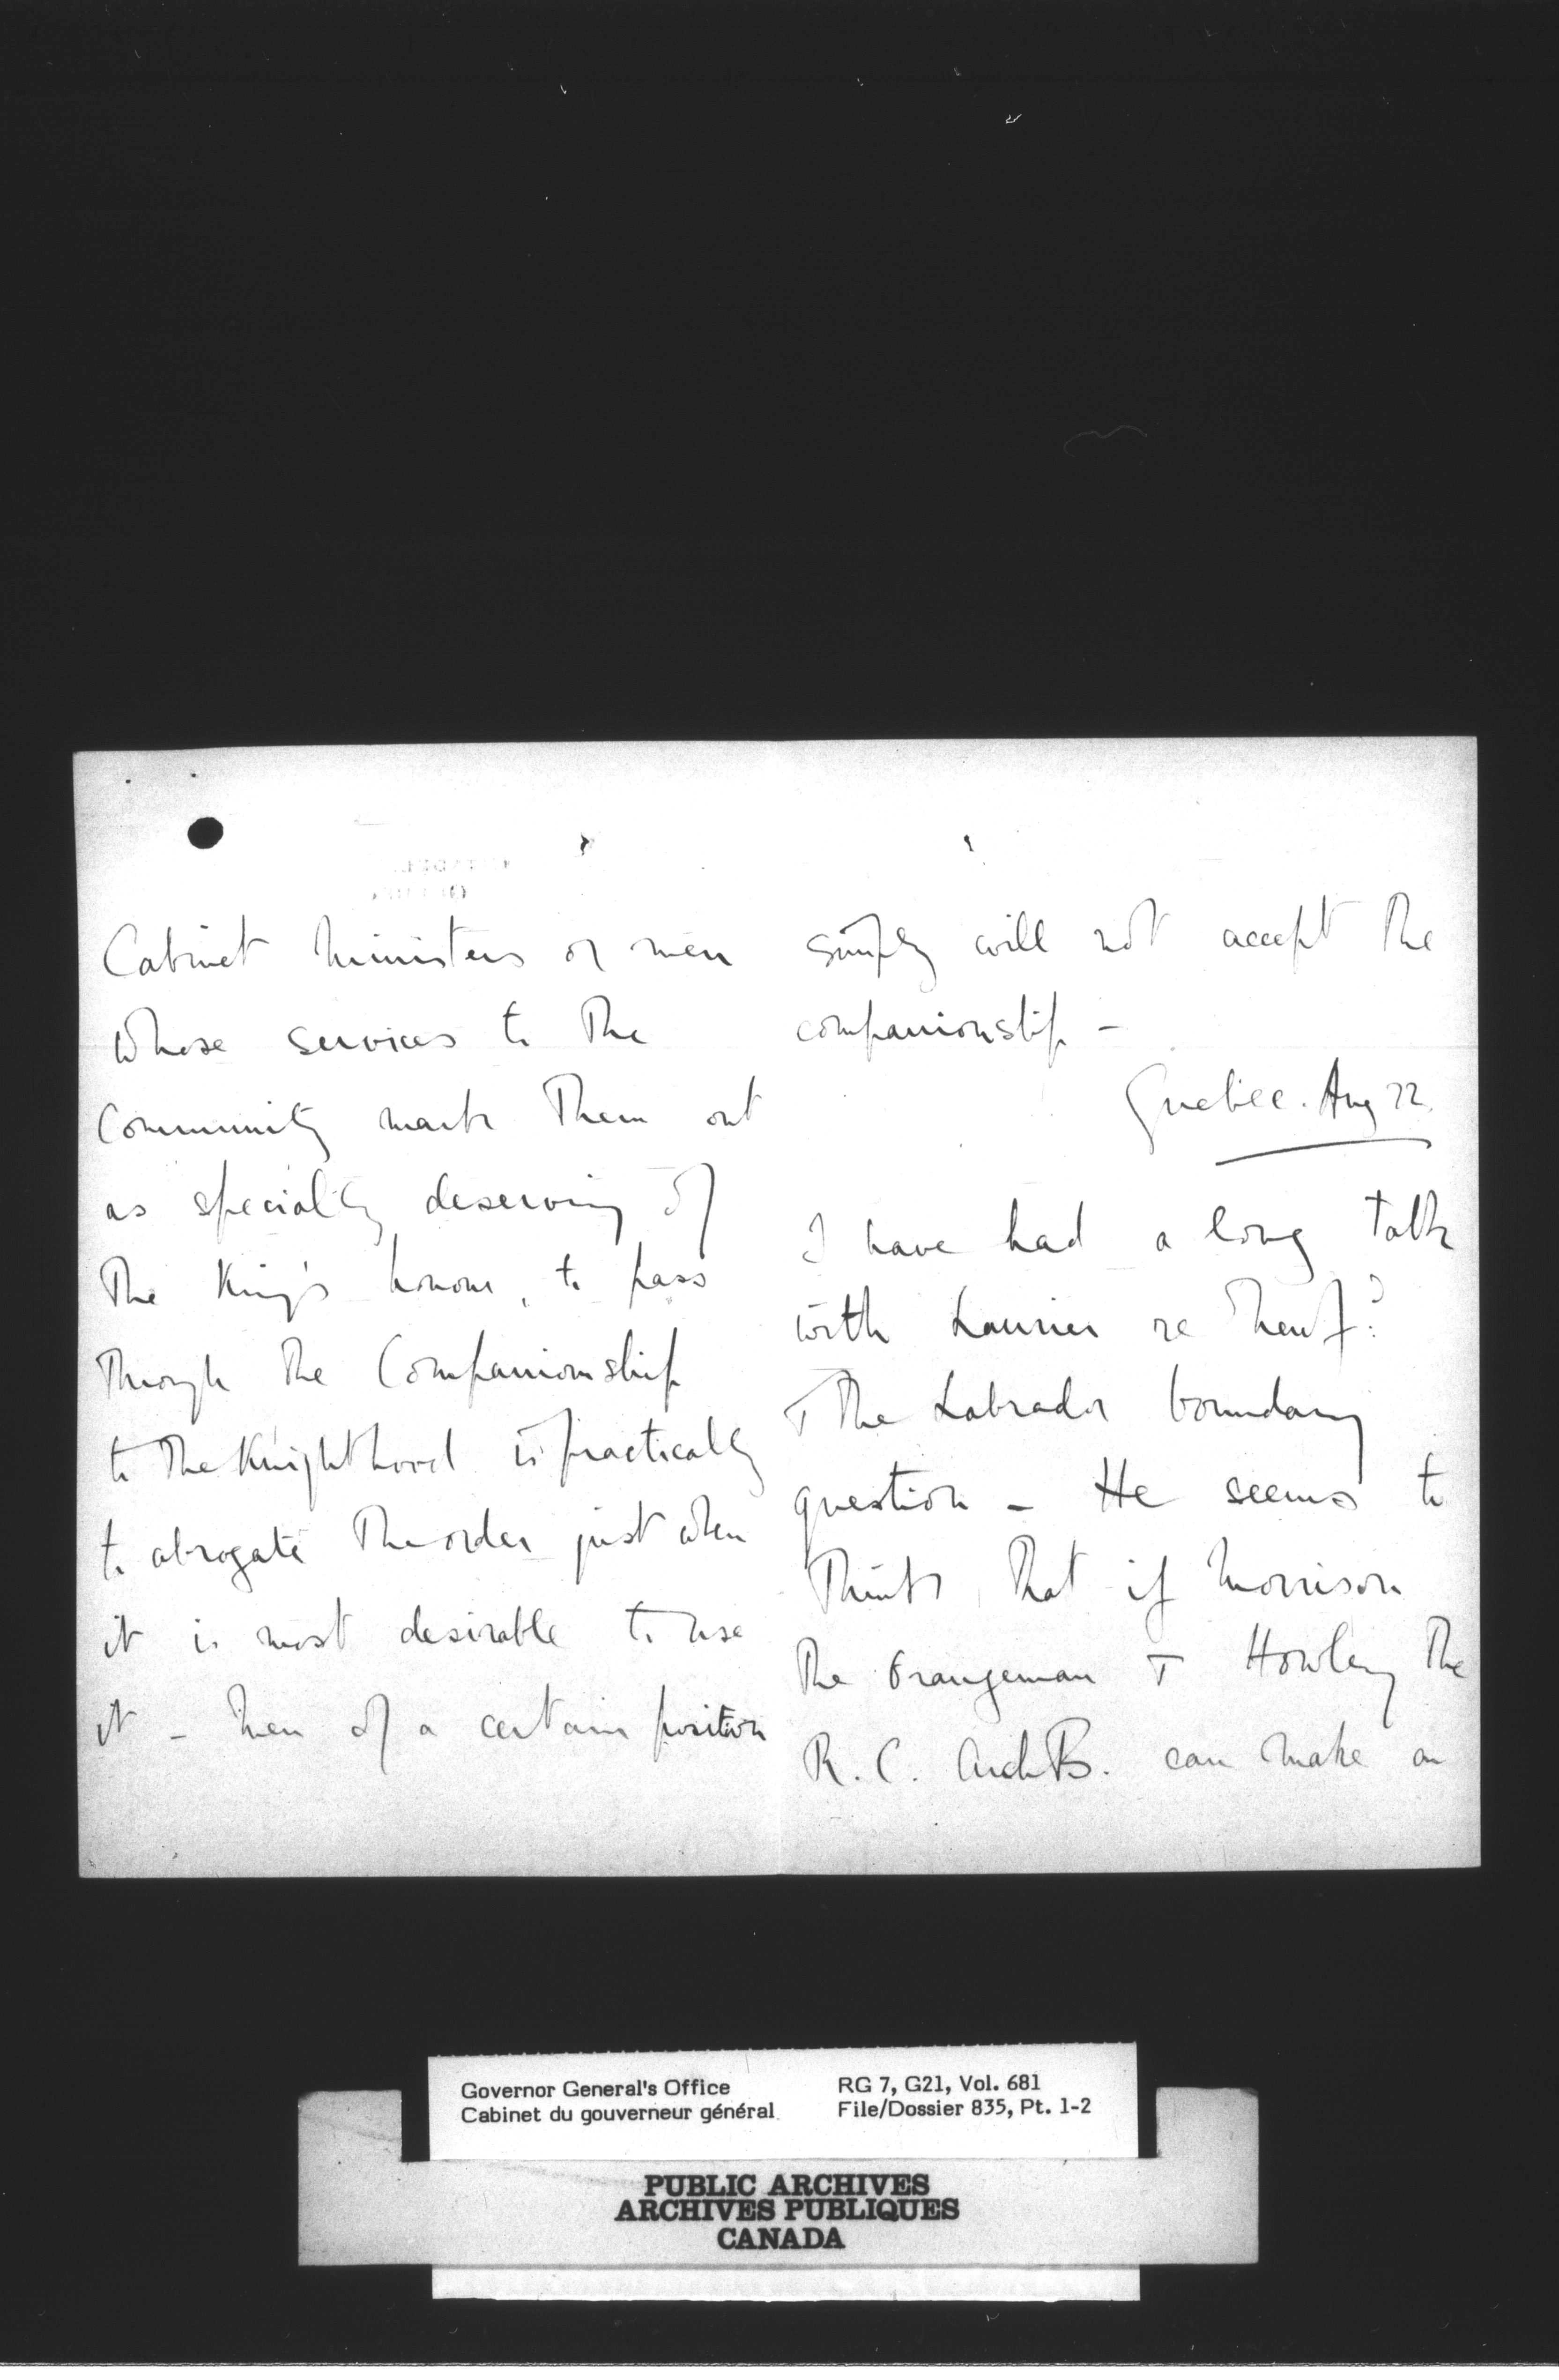 Cabinet Ministers or men
whose services to the
Community mark them out
as specially deserving of
the King's honour, to pass
through the Companionship
to the Knighthood is practically
to abrogate the order just when
it is most desirable to use
it - Men of a certain position
simply will not accept the
companionship -
Quebec. Aug 22.
I have had a long talk
with Laurier re Newf:d
& the Labrador boundary
question - He seems to
think, that if Morrison
the Orangeman & Howley the
R.C. ArchB. can make an
Governor General's Office
Cabinet du gouverneur général
RG 7, G21, Vol. 681
File/Dossier 835, Pt. 1-2
PUBLIC ARCHIVES
ARCHIVES PUBLIQUES
CANADA